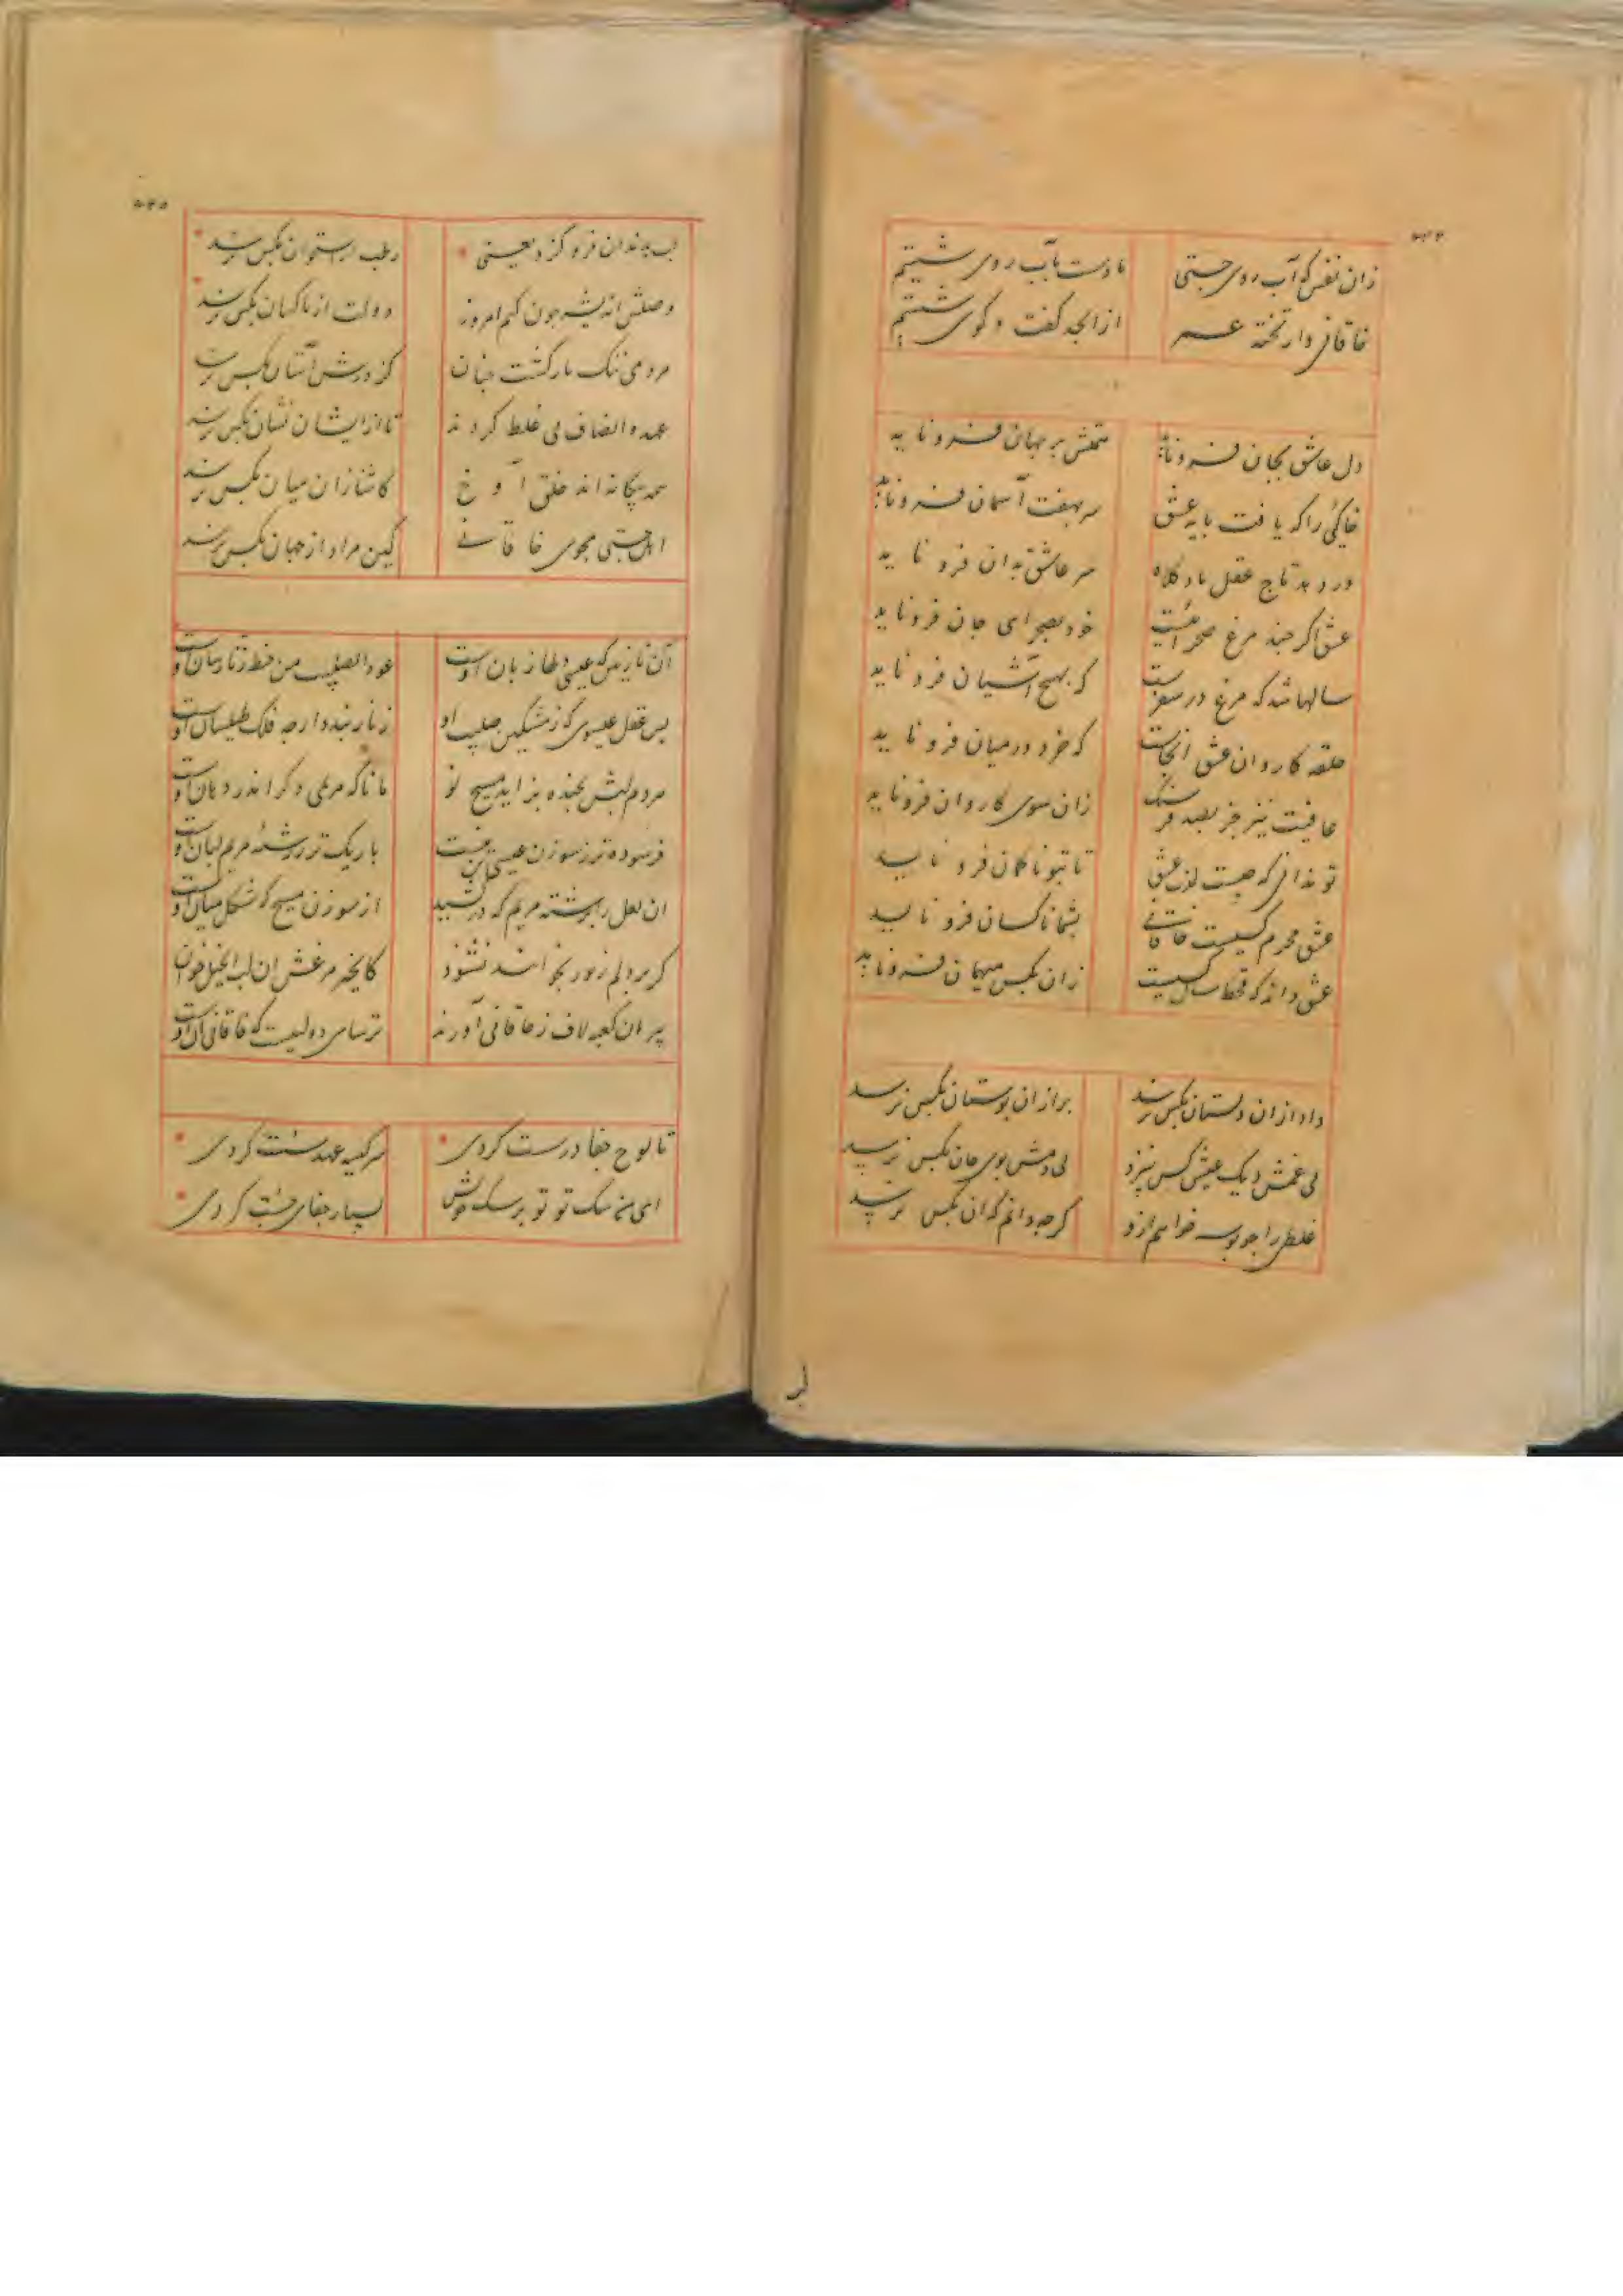 زان نفس که آب روی جستی
ما دست بآب روی شستیم
خاقانی وار تخته عمر
از ابجد گفت و گوی شستیم
دل عاشق بجان فرو ناید
همتش بر جهان فرو ناید
خاکئی را که یافت پایه عشق
سر بهفت آسمان فرو ناید
درد بد تاج عقل باد کلاه
سر عاشق بدان فرو ناید
عشق اگر چند مرغ صحرائیست
خود بصحرای جان فرو ناید
سالها شد که مرغ در سفرست
که بهیچ آشیان فرو ناید
حلقه کاروان عشق انجاست
که خرد در میان فرو ناید
عافیت نیز جز بصد فرسنگ
زان سوی کاروان فرو ناید
تو ندانی که چیست لذت عشق
تا بتو ناکهان فرو ناید
عشق محرم کسیست خاقانی
بشما ناکسان فرو ناید
عشق داند که قحط سال کسیست
زان بکس میهمان فرو ناید
داد از ان دلستان بکس نرسد
بر از ان بوستان بکس نرسد
بی غمش دیک عیش کس نپزد
بی دمش بوی جان بکس نرسد
غلطی را چو بوسه خواهم ازو
کرچه دانم که ان بکس نرسد
لب بدندان فرو کزد یعنی
رطب بی استخوان بکس نرسد
وصلش اندیشه چون کنم امروز
دولت از ناکهان بکس نرسد
مردمی ننک بار کشت چنان
کز درش آستان بکس نرسد
عهد و انصاف پی غلط کردند
تا از ایشان نشان بکس نرسد
همه بیکانه اند خلق آوخ
کاشنا زان میان بکس نرسد
اهل جستی مجوی خاقانی
کین مراد از جهان بکس نرسد
آن نازنین که عیسی دلها زبان اوست
عود الصلیب من خط زنار سان اوست
بس عقل عیسوی که ز مشکین صلیب او
زنار بندد ار چه فلک طیلسان اوست
مردم لبش بخنده بزاید مسیح نو
مانا که مریمی دکر اندر دهان اوست
فرسوده تر ز سوزن عیسی تن منست
باریک تر ز رشته مریم لبان اوست
ان لعل را برشته مریم که در کشید
از سوزن مسیح که شکل میان اوست
کر بر دلم زبور بخوانند نشنود
کانجه مرغش ان لب انجیل خوان
پیران کعبه لاف ز خاقانی آورند
ترسای دولیست که خاقانی آن اوست
تا لوح جفا درست کردی
سرکیسه عهد سست کردی
ای من سک تو تو بر سک خویش
بسیار جفای جست کردی